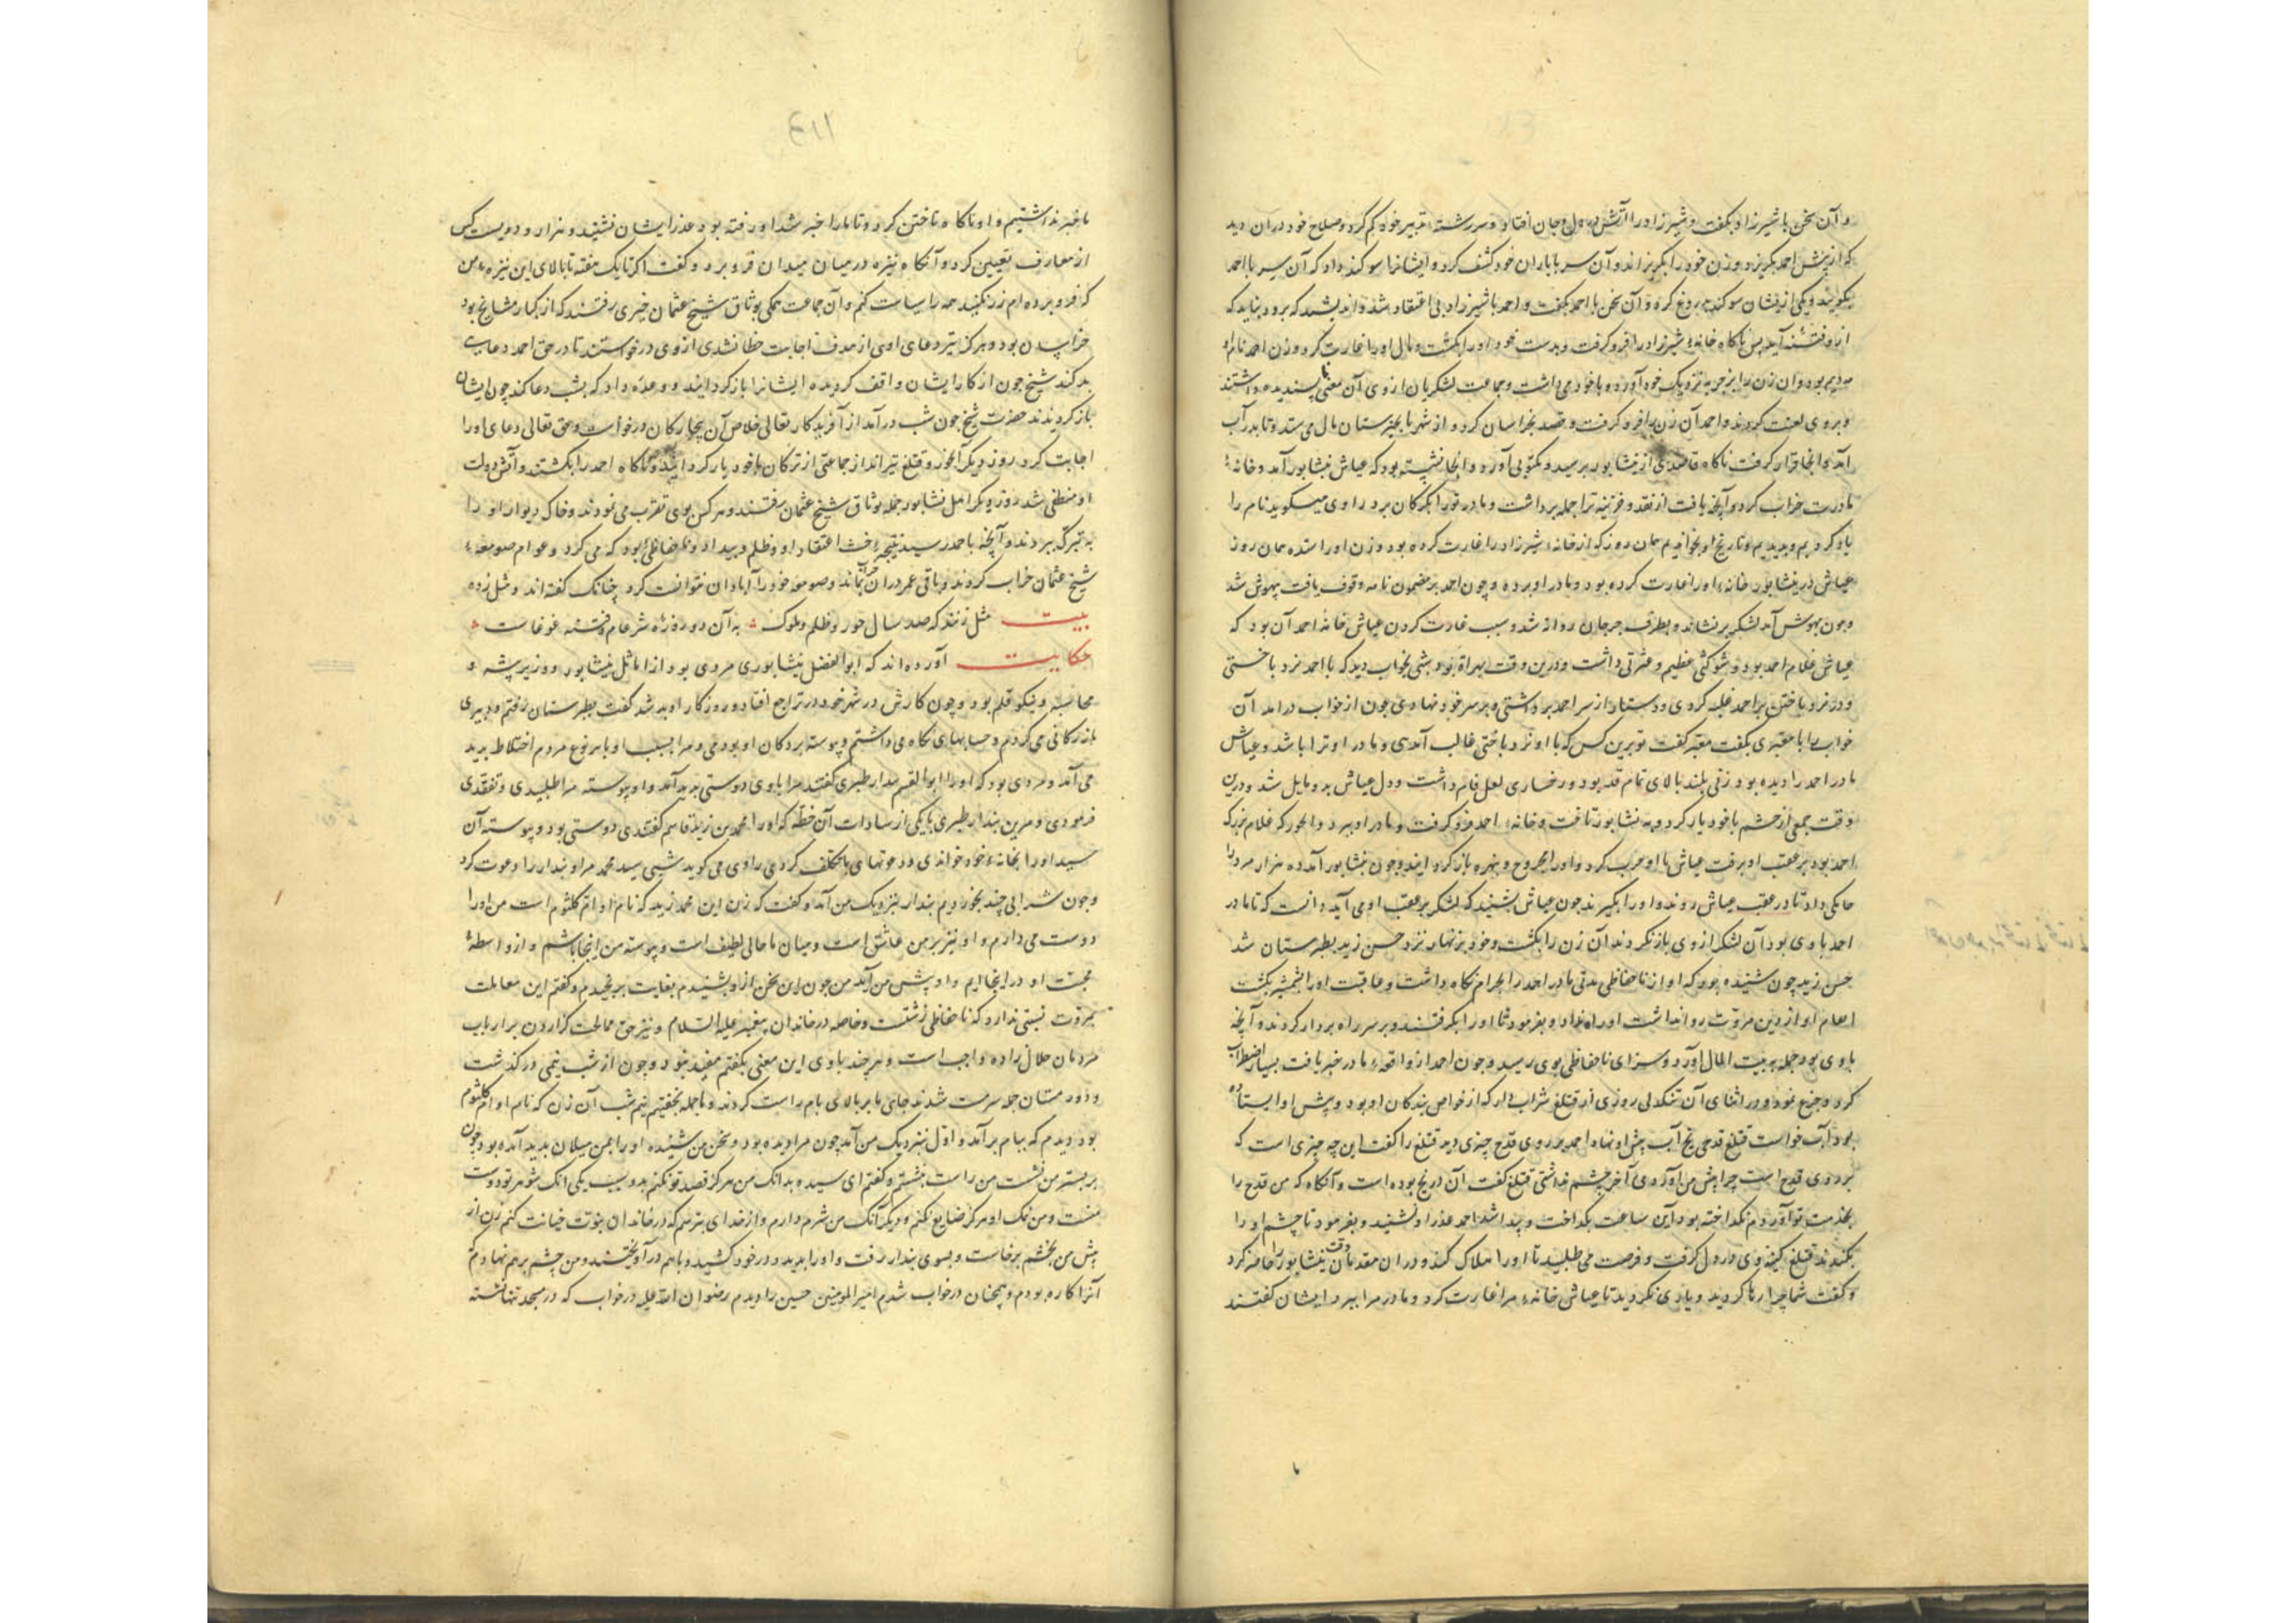 و آن سخن با شیرزاد بکفت و شیرزاد را آتش در دل و جان افتاد و سررشتهٔ تدبیر خود کم کرد و صلاح خود در ان دید
که از پیش احمد بکریزد و زن خود را بکریزاند و آن سر با یاران خود کشف کرد و ایشانرا سوکند داد که آن سر با احمد
نکویند و یکی از یشان سوکند دروغ کرد و آن سخن با احمد بکفت و احمد با شیرزاد بی اعتقاد شد و اندیشید که برود نباید که
ازو فتنه آید پس ناکاه خانهٔ شیرزاد را فرو کرفت و بدست خود او را بکشت و مال او را غارت کرد و زن احمد نام او
بود و ان زن را نزدیک خود آورد و با خود می داشت و جماعت لشکریان از وی آن معنی ناپسندیده داشتند
و بر وی لعنت کردند و احمد آن زن را فرو کرفت و قصد بخراسان کرد و از شهر مال می ستد و تا بدر آب
آمد و آنجا قرار کرفت ناکاه قاصدی از نیشابور برسید و مکتوبی آورد و آنجا نبشته بود که عیاش نیشابور آمد و خانهٔ
مادرت خراب کرد و آنچه یافت از نقد و خزینه ترا جمله برداشت و مادر تو را بکرکان برد راوی میکوید نام را
یاد کردیم و بدیدیم و تاریخ او بخواندیم همان روز که از خانهٔ شیرزاد را غارت کرده بود و زن او را ستده همان روز
عیاش در نیشابور خانهٔ او را غارت کرده بود و مادر او برده و چون احمد بر مضمون نامه وقوف یافت بیهوش شد
و چون بهوش آمد لشکر برنشاند و بطرف جرجان روانه شد و سبب غارت کردن عیاش خانهٔ احمد آن بود که
عیاش غلام احمد بود و شوکتی عظیم و عشرتی داشت و درین وقت بهراة بود شبی بخواب دید که با احمد نرد باختی
و در نرد باختن بر احمد غلبه کردی و دستار از سر احمد برداشتی و بر سر خود نهادی چون از خواب درامد آن
خواب را با معبری بکفت معبر کفت تو برین کس که با او نرد باختی غالب آمدی و مادر او ترا باشد و عیاش
مادر احمد را دیده بود زنی بلند بالای تمام قد بود و رخساری لعل فام داشت و دل عیاش بدو مایل شد و درین
وقت جمعی از حشم با خود یار کرد و به نشابور تاخت و خانهٔ احمد فرو کرفت و مادر او ببرد و که غلام بزرک
احمد بود بر عقب او برفت عیاش با او حرب کرد و او را مجروح و بازکردانید و چون نیشابور آمد ده هزار مرد را
داد تا در عقب عیاش روند و او را بکیرند چون عیاش بشنید که لشکر بر عقب او می آید دانست که تا مادر
احمد با وی بود آن لشکر از وی بازنکردند آن زن را بکشت و خود بزنهار نزد حسن زید بطبرستان شد
حسن زید چون شنیده بود که او از ناحفاظی مدتی مادر احمد را بحرام نکاه داشت و عاقبت او را بشمشیر بکشت
او از دین مروت روا نداشت او را و بفرمود تا او را بکرفتند و بر سر راه بردار کردند و آنچه
با وی بود جمله به بیت المال آورد و سزای ناحفاظی بوی رسید و چون احمد از واقعهٔ مادر خبر یافت بسیار اضطراب
کرد و جزع نمود و در اثنای آن تنکدلی روزی از قتلغ شراب دار که از خواص بندکان او بود و پیش او ایستاده
بود آب خواست قتلغ قدحی یخ آب پیش او نهاد احمد بر روی قدح چیزی دید قتلغ را کفت این چه چیزی است که
بر روی قدح است چرا پیش من آوردی آخر چشم نداشتی قتلغ کفت آن در یخ بوده است و آنکاه که من قدح را
بخدمت تو آوردم نکداخته بود این ساعت بکداخت و پیدا شد احمد عذر او نشنید و بفرمود تا چشم او را
بکندند قتلغ کینهٔ وی در دل کرفت و فرصت می طلبید تا او را هلاک کند و در ان وقت مقدمان نیشابور را حاضر کرد
و کفت شما چرا رها کردید و یاری نکردید تا عیاش خانهٔ مرا غارت کرد و مادر مرا ببرد ایشان کفتند
۱۱۳
ما خبر نداشتیم و او ناکاه تاختن کرد و تا ما را خبر شد او رفته بود عذر ایشان نشنید و هزار و دویست کس
از معارف تعیین کرد و آنکاه نیزه در میان میدان فرو برد و کفت اکر تا یک هفته تا بالای این نیزه که من
فرو برده ام زر نکنید همه را سیاست کنم و آن جماعت همکی بوثاق شیخ عثمان حیری رفتند که از کبار مشایخ
خراسان بود و هرکز تیر دعای اوی از هدف اجابت خطا نشدی از وی درخواستند تا در حق احمد دعای
بد کند شیخ چون از کار ایشان واقف کردید ایشانرا بازکردانید و وعده داد که بشب دعا کند چون ایشان
بازکردیدند حضرت شیخ چون شب درآمد از آفریدکار تعالی خلاص آن بیچارکان درخواست و حق تعالی دعای او را
اجابت کرد روز دیکر و قتلغ تیرانداز جماعتی از ترکان با خود یار کردانید و ناکاه احمد را بکشتند و آتش دولت
او منطفی شد روز دیکر اهل نشابور جمله بوثاق شیخ عثمان رفتند و هر کس بوی تقرب می نمودند و خاک دیوار او را
به تبرک ببردند و آنچه باحمد رسید نتیجهٔ خبث اعتقاد او و ظلم و بیداد و ناحفاظی بود که می کرد و عوام صومعهٔ
شیخ عثمان خراب کردند و باقی عمر در ان خرابی بماند و صومعهٔ خود را آبادان نتوانست کرد چنانک کفته اند و مثل زده
بیت مثل زنند که صد سال جور و ظلم ملوک به از دو روزه شر عام و فتنه غوغاست
حکایت آورده اند که ابو الفضل نیشابوری مردی بود از اماثل نیشابور و دبیر پیشه و
محاسبه و نیکو قلم بود و چون کارش در شهر خود در تراجع افتاد و روزکار او بد شد کفت بطبرستان رفتم و دبیری
بازرکانی می کردم و حسابهای نکاه می داشتم و پیوسته بر دکان او بودمی و مرا بسبب او با هر نوع مردم اختلاط پدید
می آمد و مردی بود که او را ابو القسم بندار طبری کفتند مرا با وی دوستی پدید آمد و او پیوسته مرا طلبیدی و تفقدی
فرمودی و مر این بندار طبری با یکی از سادات آن خطه که او را محمد بن زید قاسم کفتندی دوستی بود و پیوسته آن
سید او را بخانهٔ خود خواندی و دعوتهای باتکلف کردی راوی می کوید شبی سید محمد مرا و بندار را دعوت کرد
و چون شرابی چند بخوردیم بندار بنزدیک من آمد و کفت که زن این محمد زید که نام او ام کلثوم است من او را
دوست می دارم و او نیز بر من عاشق است و میان ما حالی لطیف است و پیوسته من اینجا باشم و از واسطهٔ
محبت او در اینجا ایم و او پیش من آید من چون این سخن از او بشنیدم بغایت برنجیدم و کفتم این معاملت
بمروت نسبتی ندارد که ناحفاظی زشتست و خاصه در خاندان پیغمبر علیه السلام و نیز حق ممالحت کزاردن بر ارباب
مردمان حلال زاده واجب است و هر چند با وی این معنی بکفتم مفید نبود و چون از شب نیمی درکذشت
و دور مستان جمله سرمست شدند جای ما بر بالای بام راست کردند و ما جمله بخفتیم نیم شب آن زن که نام او ام کلثوم
بود دیدم که ببام برآمد و اول بنزدیک من آمد چون مرا دیده بود و سخن من شنیده او را بمن میلان پدید آمده بود چون
بر بستر من نشست من راست بنشستم و کفتم ای سیده بدانک من هرکز قصد تو نکنم بدو سبب یکی انک شوهر تو دوست
منست و من نمک او هرکز ضایع نکنم و دیکر آنک من شرم دارم و از خدای بترسم که در خاندان نبوت خیانت کنم زن از
پیش من بخشم برخاست و بسوی بندار رفت و او را بدید و در خود کشید و با هم درآویختند و من چشم بر هم نهادم
آنرا کاره بودم و همچنان در خواب شدم امیر المومنین حسین را دیدم رضوان الله علیه در خواب که در مسجد تنها نشسته